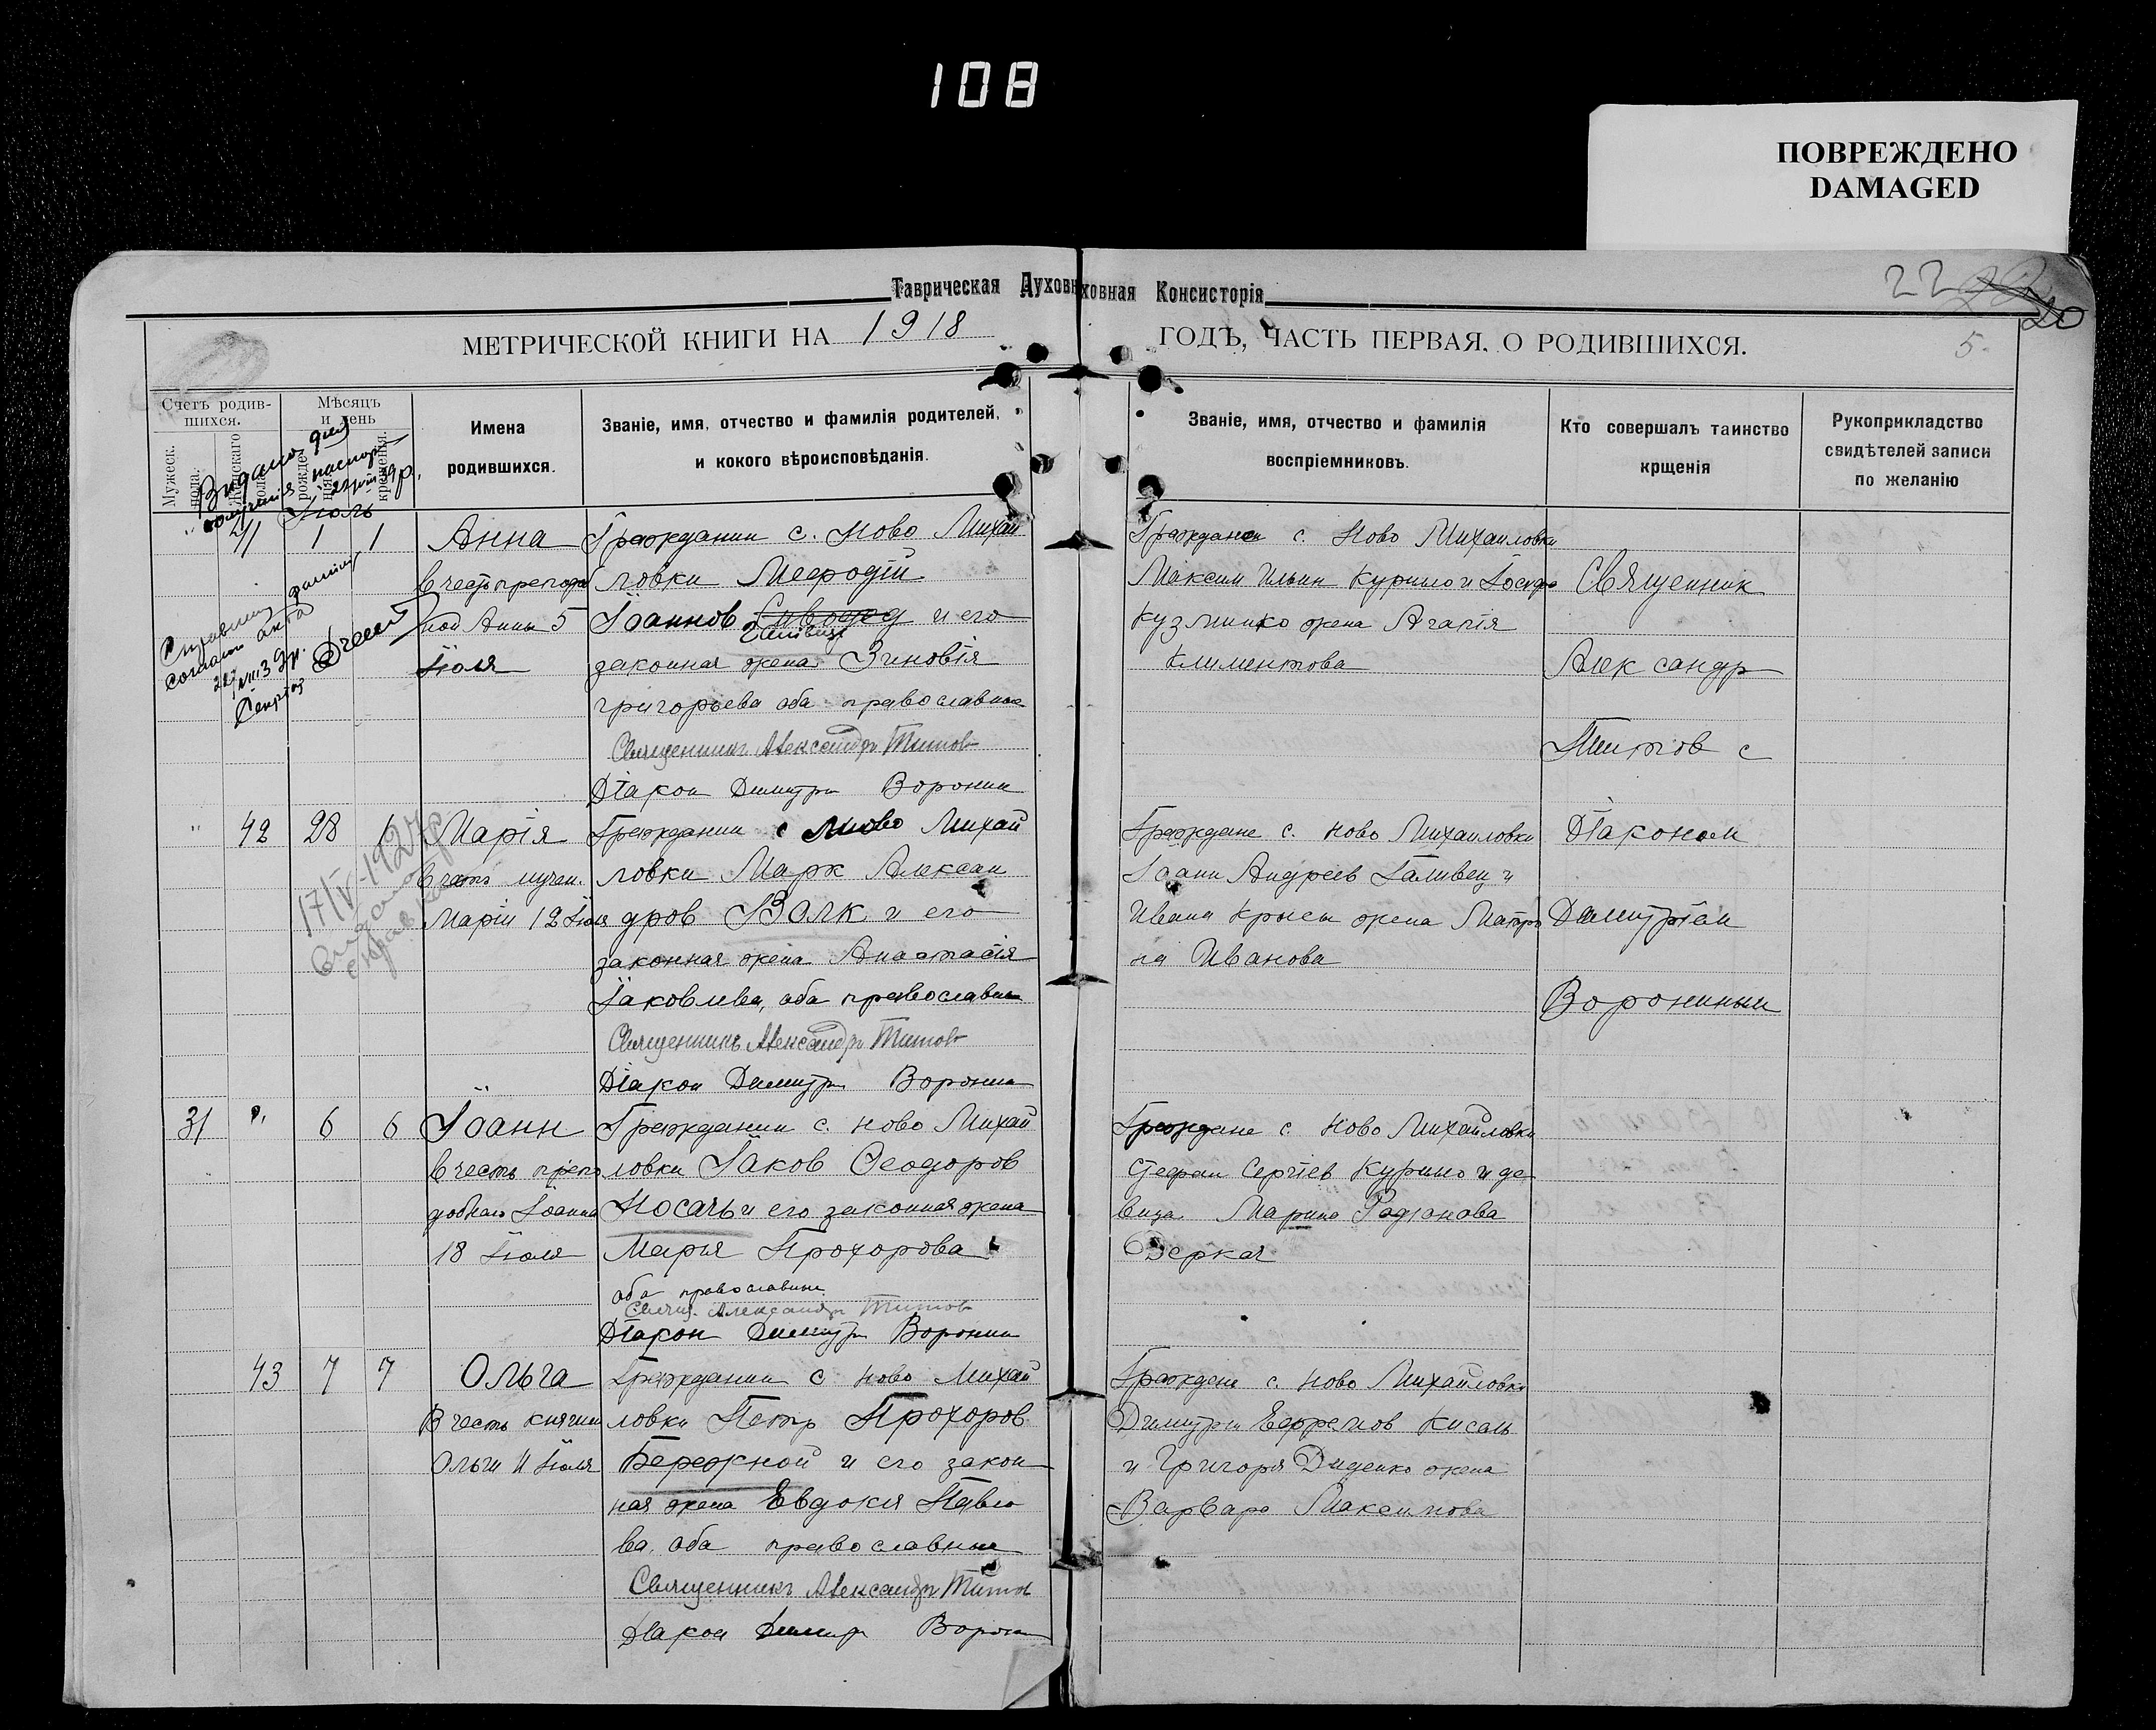 108
ПОВРЕЖДЕНО
DAMAGED
Таврическая Духовн ховная Консисторія
22
20
5
МЕТРИЧЕСКОЙ КНИГИ НА 1918
ГОДЪ, ЧАСТЬ ПЕРВАЯ, О РОДИВШИХСЯ.
Счетъ родив-
шихся.
Мужеск.
пола.
Женскаго
пола.
Мѣсяцъ
и день
рожде-
нія.
крещенія.
Имена
родившихся.
Званіе, имя, отчество и фамилія родителей,
и кокого вѣроисповѣданія.
Званіе, имя, отчество и фамилія
воспріемниковъ.
Кто совершалъ таинство
крщенія
Рукоприкладство
свидѣтелей записи
по желанію
Іюль
41 1 1 Анна
в честь препод
ной Анны 5
Іюля
Гражданин с. Ново Михай
ловки Мефодій
Іоаннов и его
законная жена Зиновія
Григорьева оба православные
Священникъ Александръ Титов
Діакон Димитри Воронин
Граждане с. Ново Михайловки
Максим Ильин Курило и
Кузминко жена Агапія
Климентова
Священник
Александр
Титов с
Діаконом
Димитріем
Ворониным
42 28 1 Марія
в честь мучен.
Маріи 12 Іюля
17/IV-1927
Гражданин с Ново Михай
ловки Марк Алексан
дров Волк и его
законная жена Анастасія
Іаковлева, оба православные
Священникъ Александръ Титов
Діакон Димитри Воронин
Граждане с. Ново Михайловки
Іоанн Андреев Галивец и
Ивана Крысы жена Матро
на Иванова
31 " 6 6 Іоанн
в честь препо
добнаго Іоанна
18 Іюля
Гражданин с. Ново Михай
ловки Іаков Феодоров
Носачь и его законная жена
Марія Прохорова
оба православные
Свящ. Александръ Титов
Діакон Димитри Воронин
Граждане с. Ново Михайловки
Стефан Сергіев Курило и де
вица Марина Родіонова
Деркач
43 7 7 Ольга
В честь княгини
Ольги 11 Іюля
Гражданин с Ново Михай
ловки Петр Прохоров
Бережной и его закон
ная жена Евдокія Павло
ва. оба православные
Священникъ Александръ Титов
Діакон Димитри Воронин
Граждане с. Ново Михайловки
Димитри Ефремов Кисель
и Григорія Диденко жена
Варвара Максимова